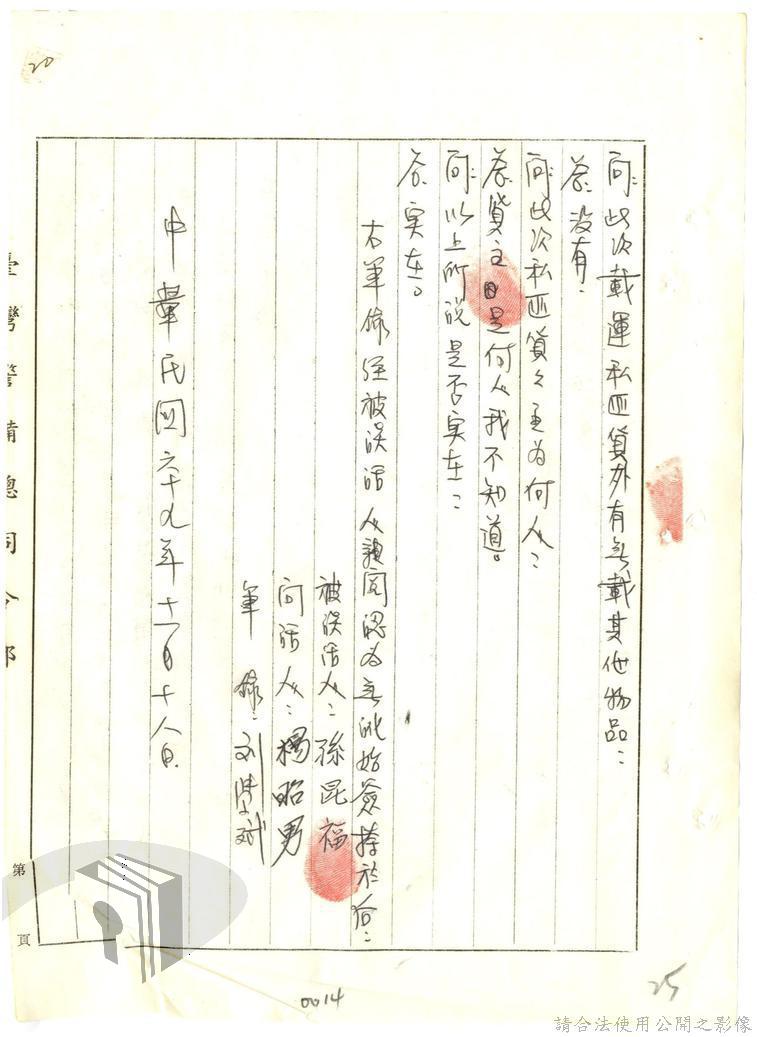 20
問：此次載運私匪貨外有無載其他物品：
答：没有：
問：此次私匪貨之主為何人：
答：貨主是何人我不知道。
問：以上所說是否实在：
答：实在。
右筆錄經被談話人親閱認為無訛始簽捺於后：
被談話人：孫昆福
問話人：楊昭男
筆錄：刘
中華民國六十九年十一月十八日
臺灣警備總司令部
第 頁
0014
25
請合法使用公開之影像